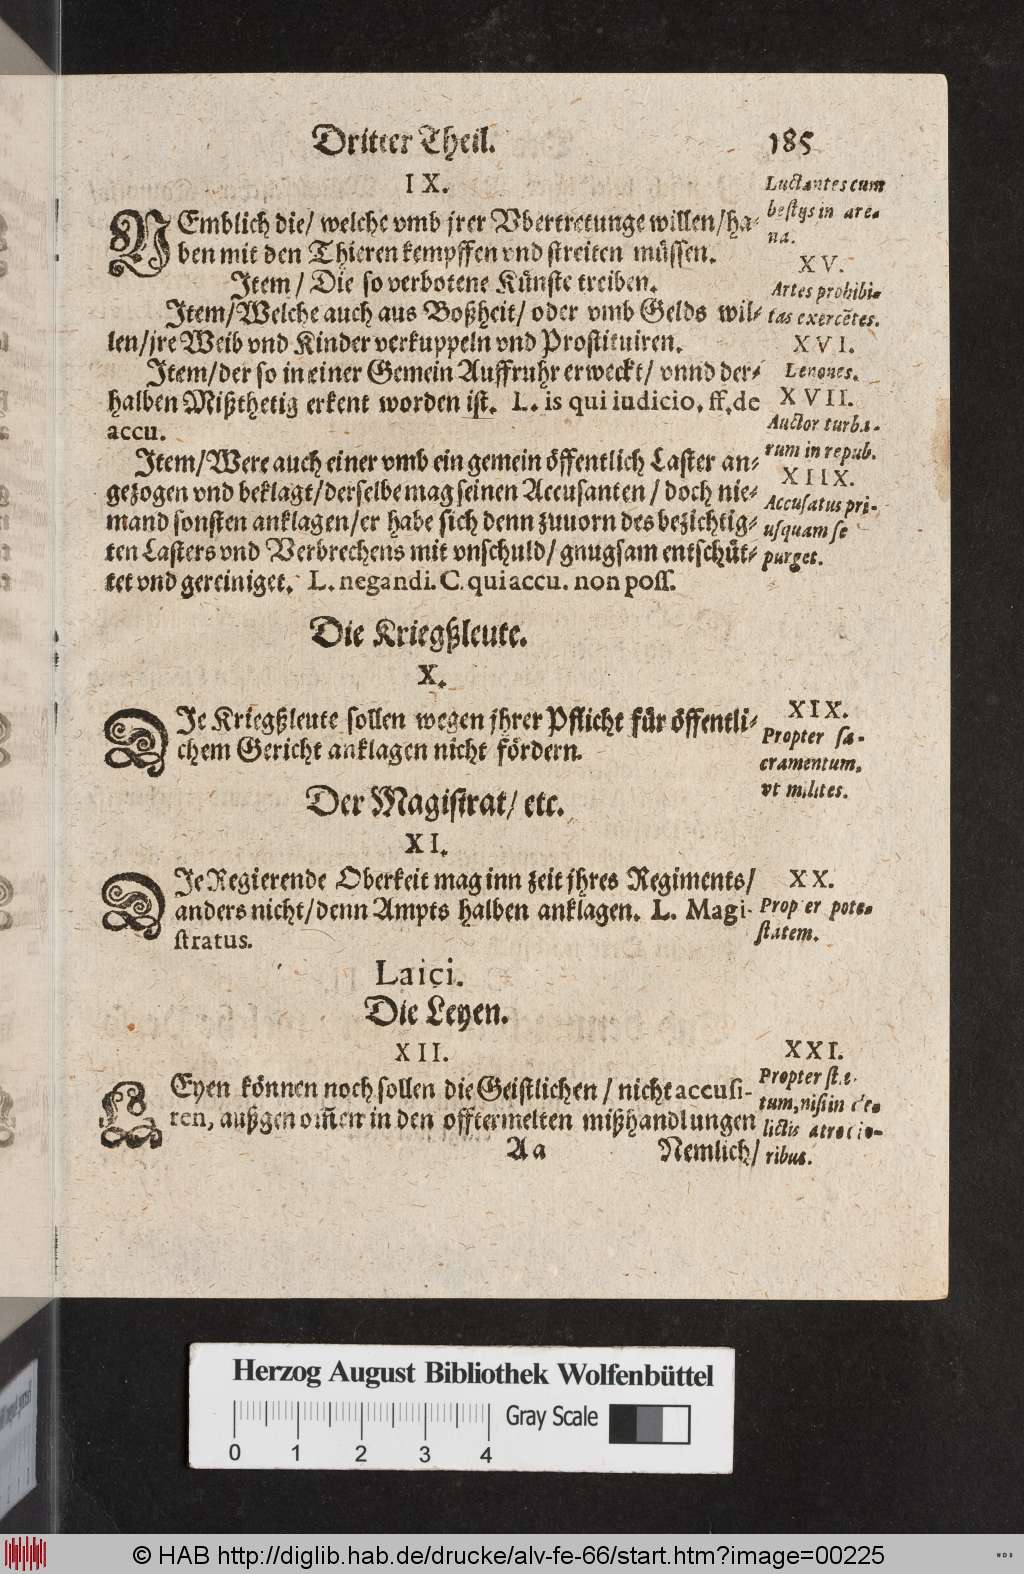 Dritter Theil. 185
IX.
NEmblich die/ welche vmb jrer Vbertretunge willen/ ha-
ben mit den Thieren kempffen vnd streiten müssen.
Item/ Die so verbotene Künste treiben.
Item/ Welche auch aus Boßheit/ oder vmb Gelds wil-
len/ jre Weib vnd Kinder verkuppeln vnd Prostituiren.
Item/ der so in einer Gemein Auffruhr erweckt/ vnnd der-
halben Mißthetig erkent worden ist. L. is qui iudicio. ff. de
accu.
Item/ Were auch einer vmb ein gemein öffentlich Laster an-
gezogen vnd beklagt/ derselbe mag seinen Accusanten/ doch nie-
mand sonsten anklagen/ er habe sich denn zuuorn des bezichtig-
ten Lasters vnd Verbrechens mit vnschuld/ gnugsam entschüt-
tet vnd gereiniget. L. negandi. C. qui accu. non poss.
Luctantes cum
bestijs in are-
na.
XV.
Artes prohibi-
tas exercētes.
XVI.
Lenones.
XVII.
Auctor turba-
rum in repub.
XIIX.
Accusatus pri-
usquam se
purget.
Die Kriegßleute.
X.
DIe Kriegßleute sollen wegen jhrer Pflicht für öffentli-
chem Gericht anklagen nicht fördern.
XIX.
Propter sa-
cramentum,
vt milites.
Der Magistrat/ etc.
XI.
DIe Regierende Oberkeit mag inn zeit jhres Regiments/
anders nicht/ denn Ampts halben anklagen. L. Magi-
stratus.
XX.
Propter pote-
statem.
Laici.
Die Leyen.
XII.
LEyen können noch sollen die Geistlichen/ nicht accusi-
ren, außgenom̄en in den offtermelten mißhandlungen
Aa Nemlich/
XXI.
Propter sta-
tum, nisi in de-
lictis atrocio-
ribus.
Herzog August Bibliothek Wolfenbüttel
Gray Scale
0 1 2 3 4
© HAB http://diglib.hab.de/drucke/alv-fe-66/start.htm?image=00225